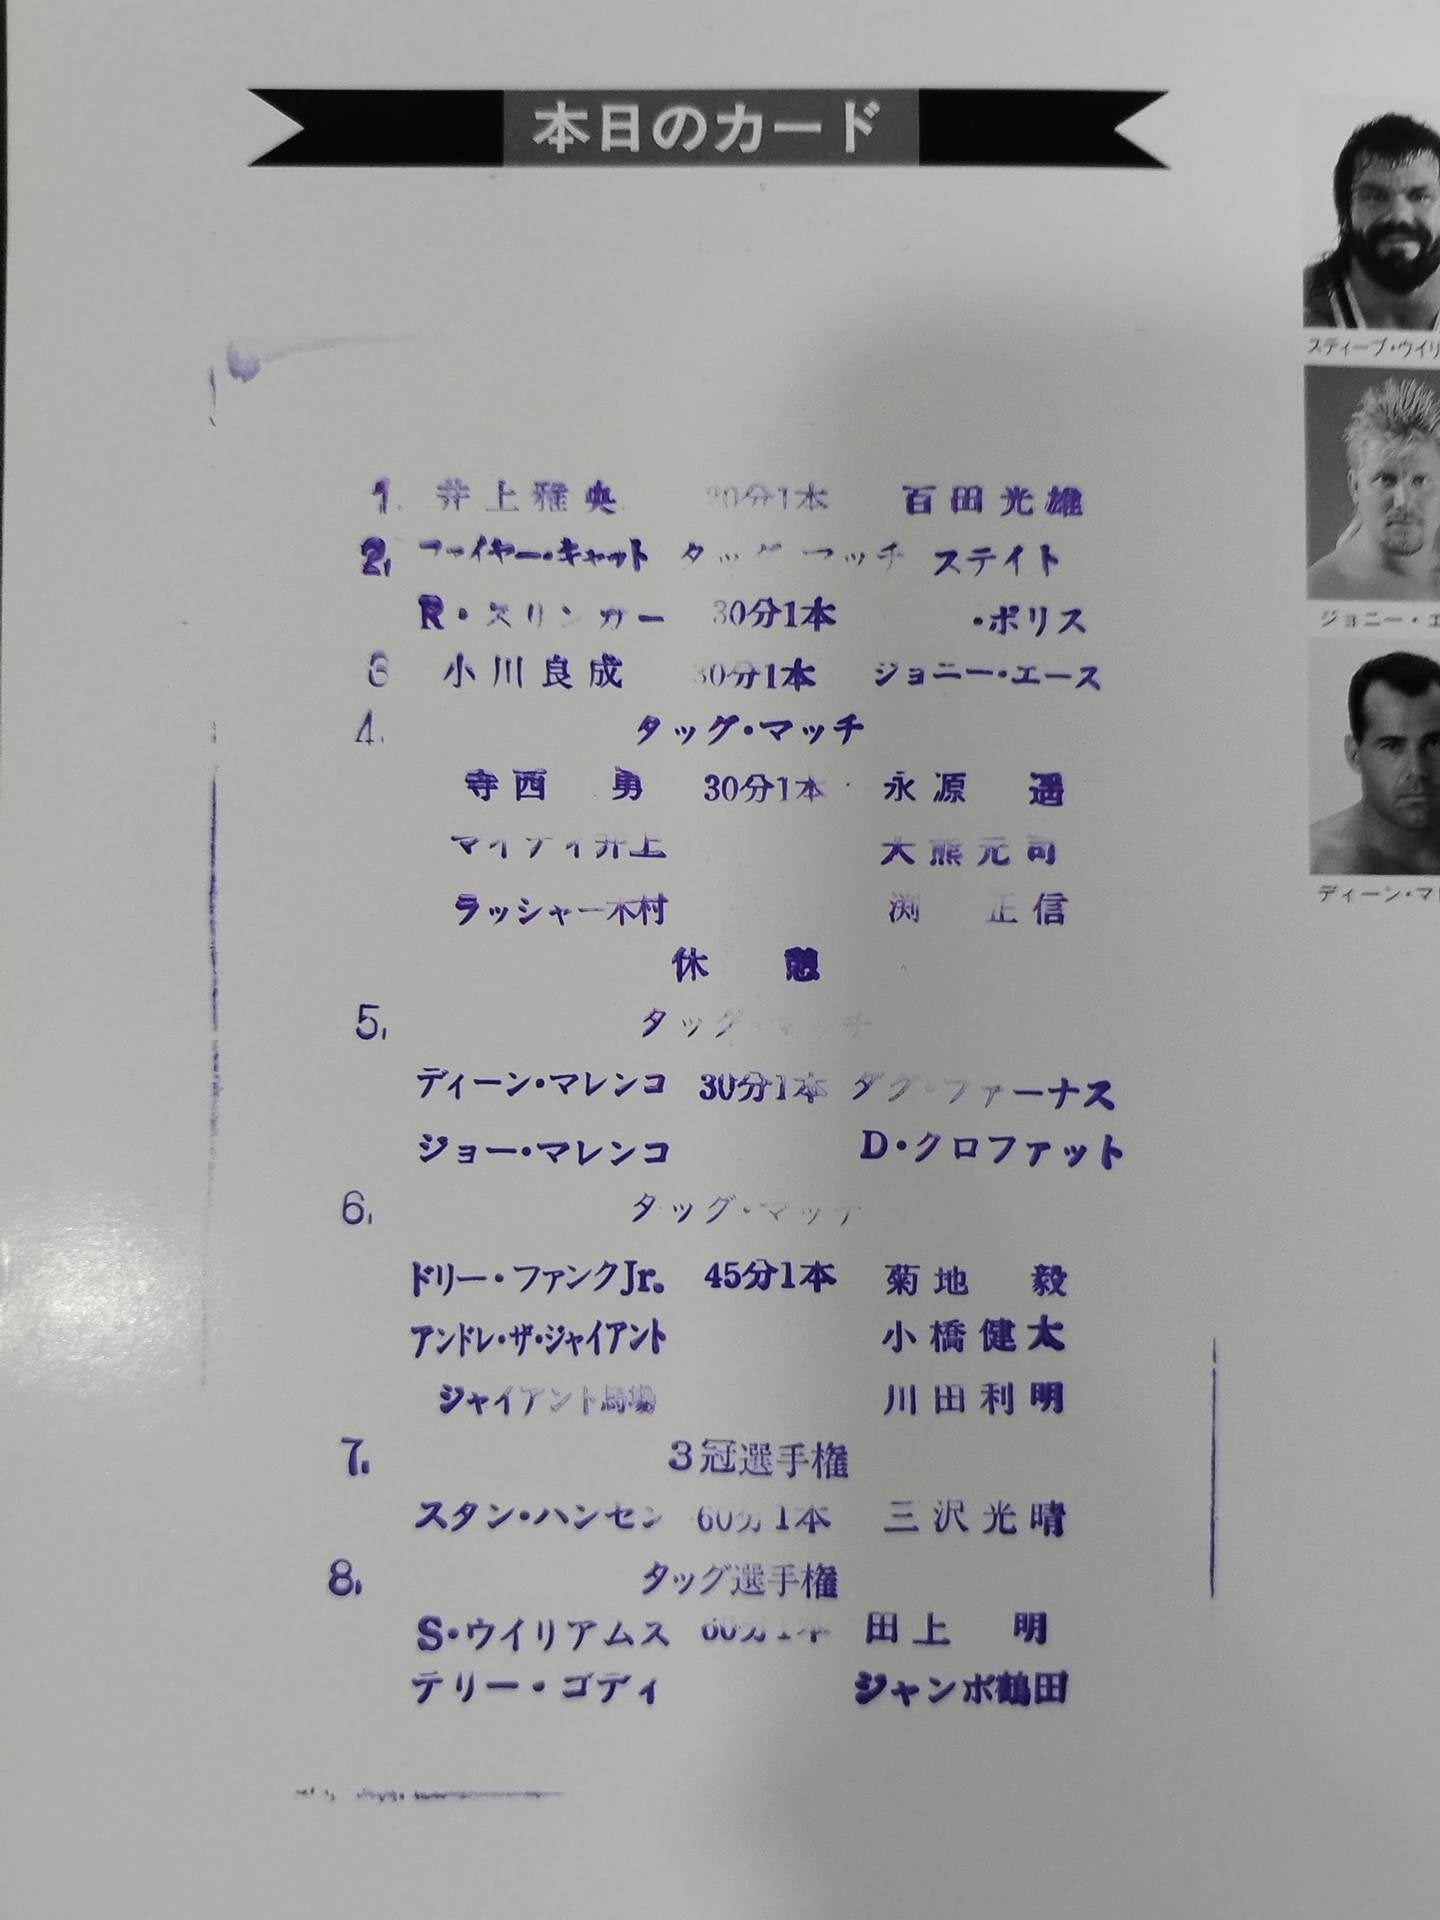 本日のカード
1. 井上雅央 30分1本 百田光雄
2. ファイヤー・キャット タッグ・マッチ ステイト
R・スリンガー 30分1本 ・ポリス
3 小川良成 30分1本 ジョニー・エース
4. タッグ・マッチ
寺西 勇 30分1本 永源 遥
マイティ井上 大熊元司
ラッシャー木村 渕 正信
休 憩
5. タッグ・マッチ
ディーン・マレンコ 30分1本 ダグ・ファーナス
ジョー・マレンコ D・クロファット
6. タッグ・マッチ
ドリー・ファンクJr. 45分1本 菊地 毅
アンドレ・ザ・ジャイアント 小橋健太
ジャイアント馬場 川田利明
7. 3冠選手権
スタン・ハンセン 60分1本 三沢光晴
8. タッグ選手権
S・ウイリアムス 60分1本 田上 明
テリー・ゴディ ジャンボ鶴田
スティーブ・ウイリ
ジョニー・エ
ディーン・マレ